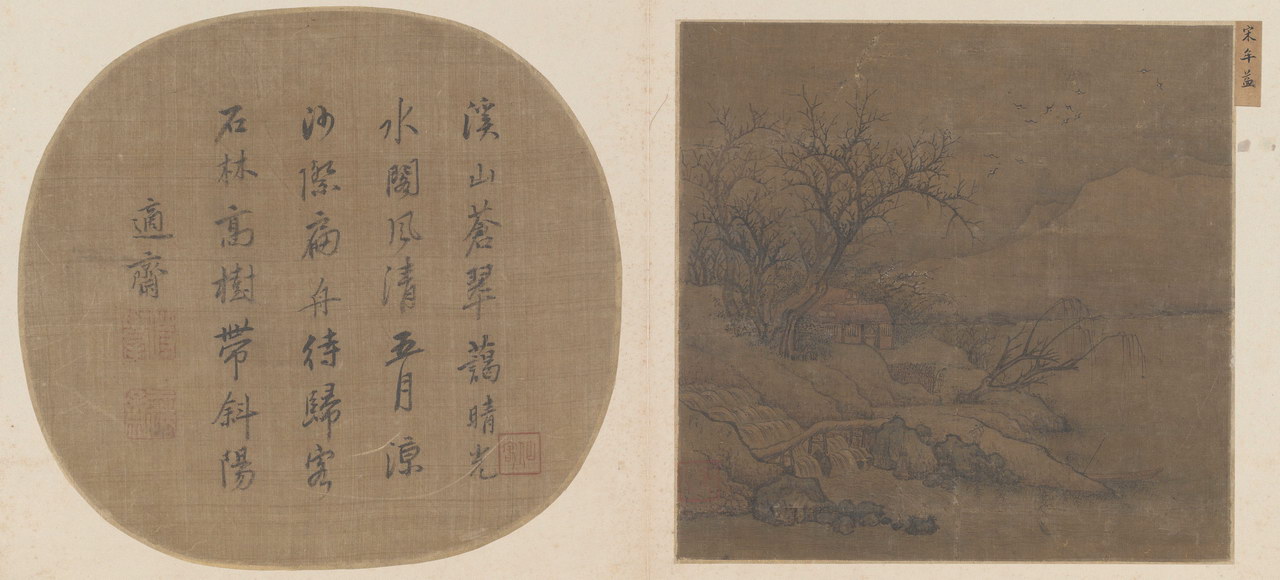 溪山蒼翠藹晴光
水閣風清五月涼
沙際扁舟待歸客
石林高樹帶斜陽
適齋
宋牟益